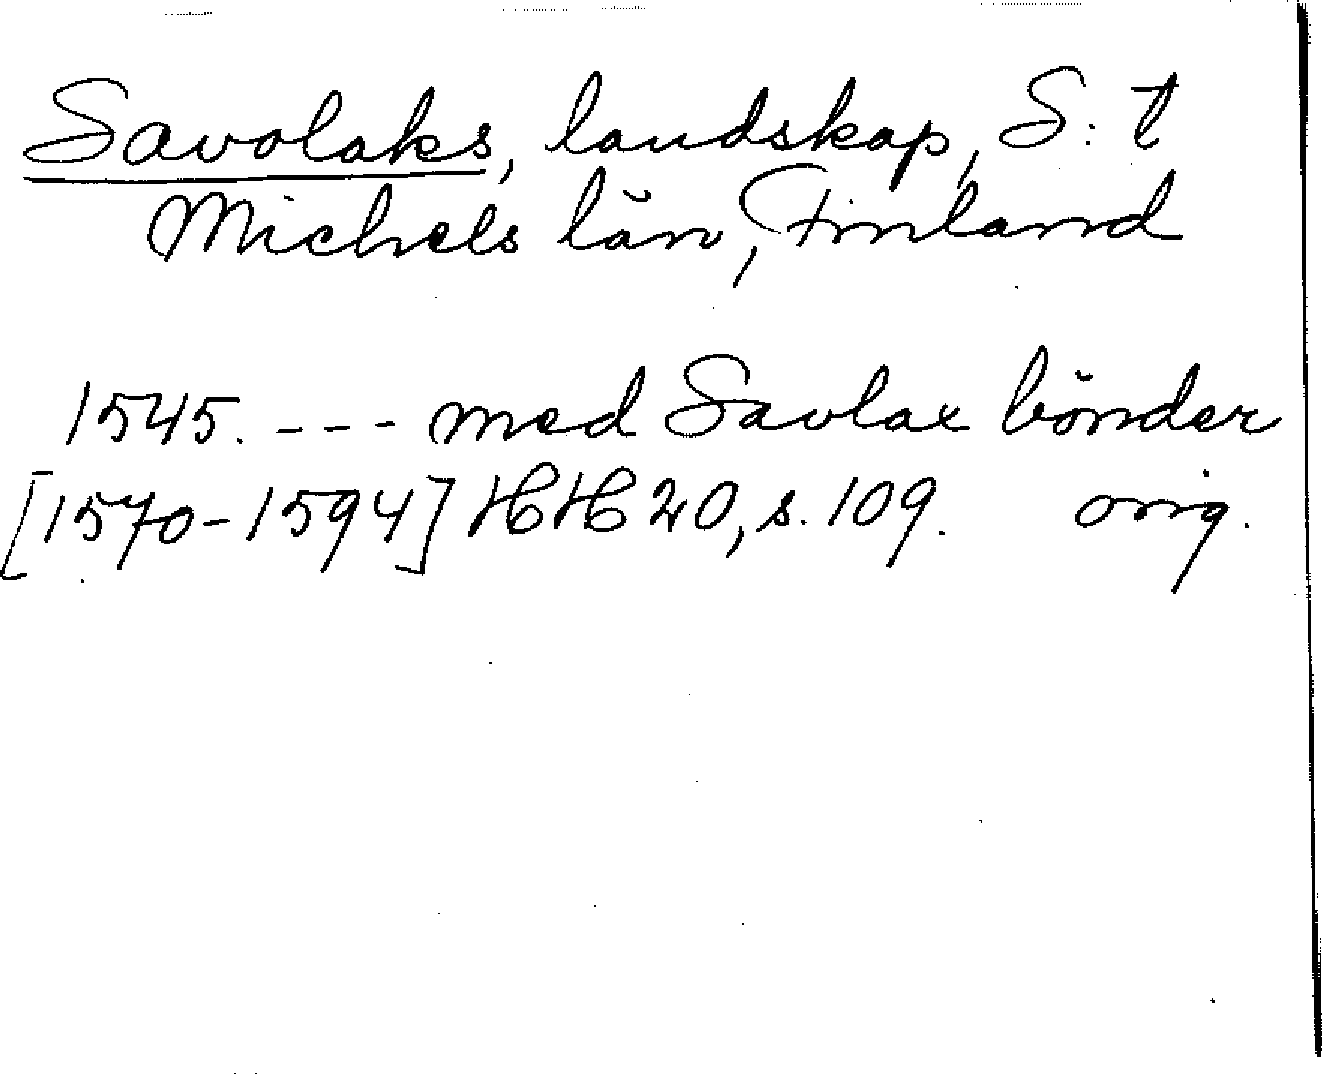 Savolaks, landskap, S:t
Michels län, Finland
1545. --- med Savlax bönder
[1570-1594] HH 20, s. 109. orig.